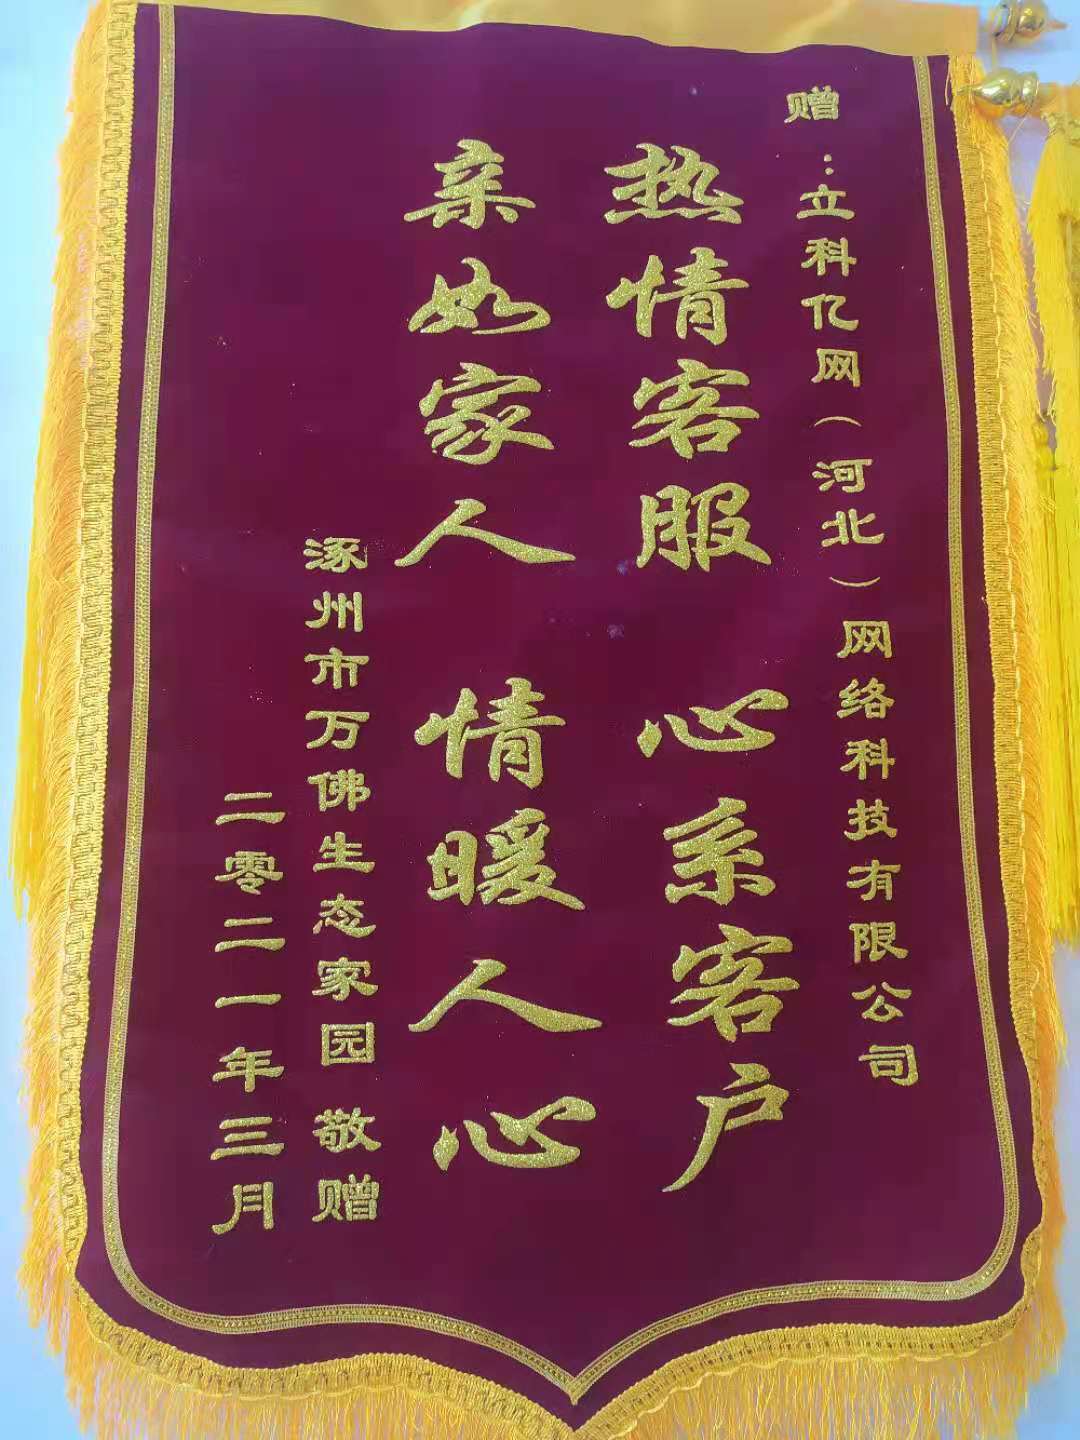 赠：立科亿网（河北）网络科技有限公司
热情客服 心系客户
亲如家人 情暖人心
涿州市万佛生态家园 敬赠
二零二一年三月